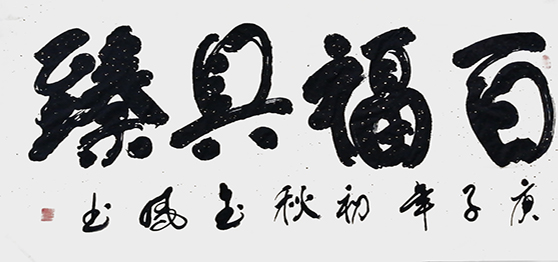 百福具臻
庚子年初秋书